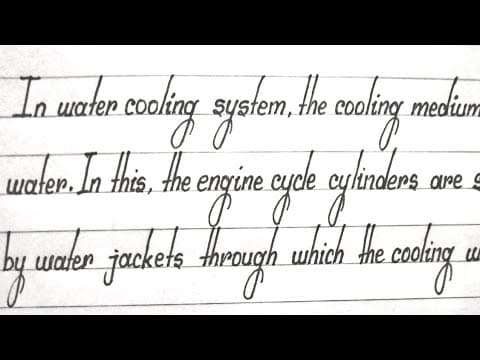 In water cooling system, the cooling medium
water. In this, the engine cycle cylinders are
by water jackets through which the cooling